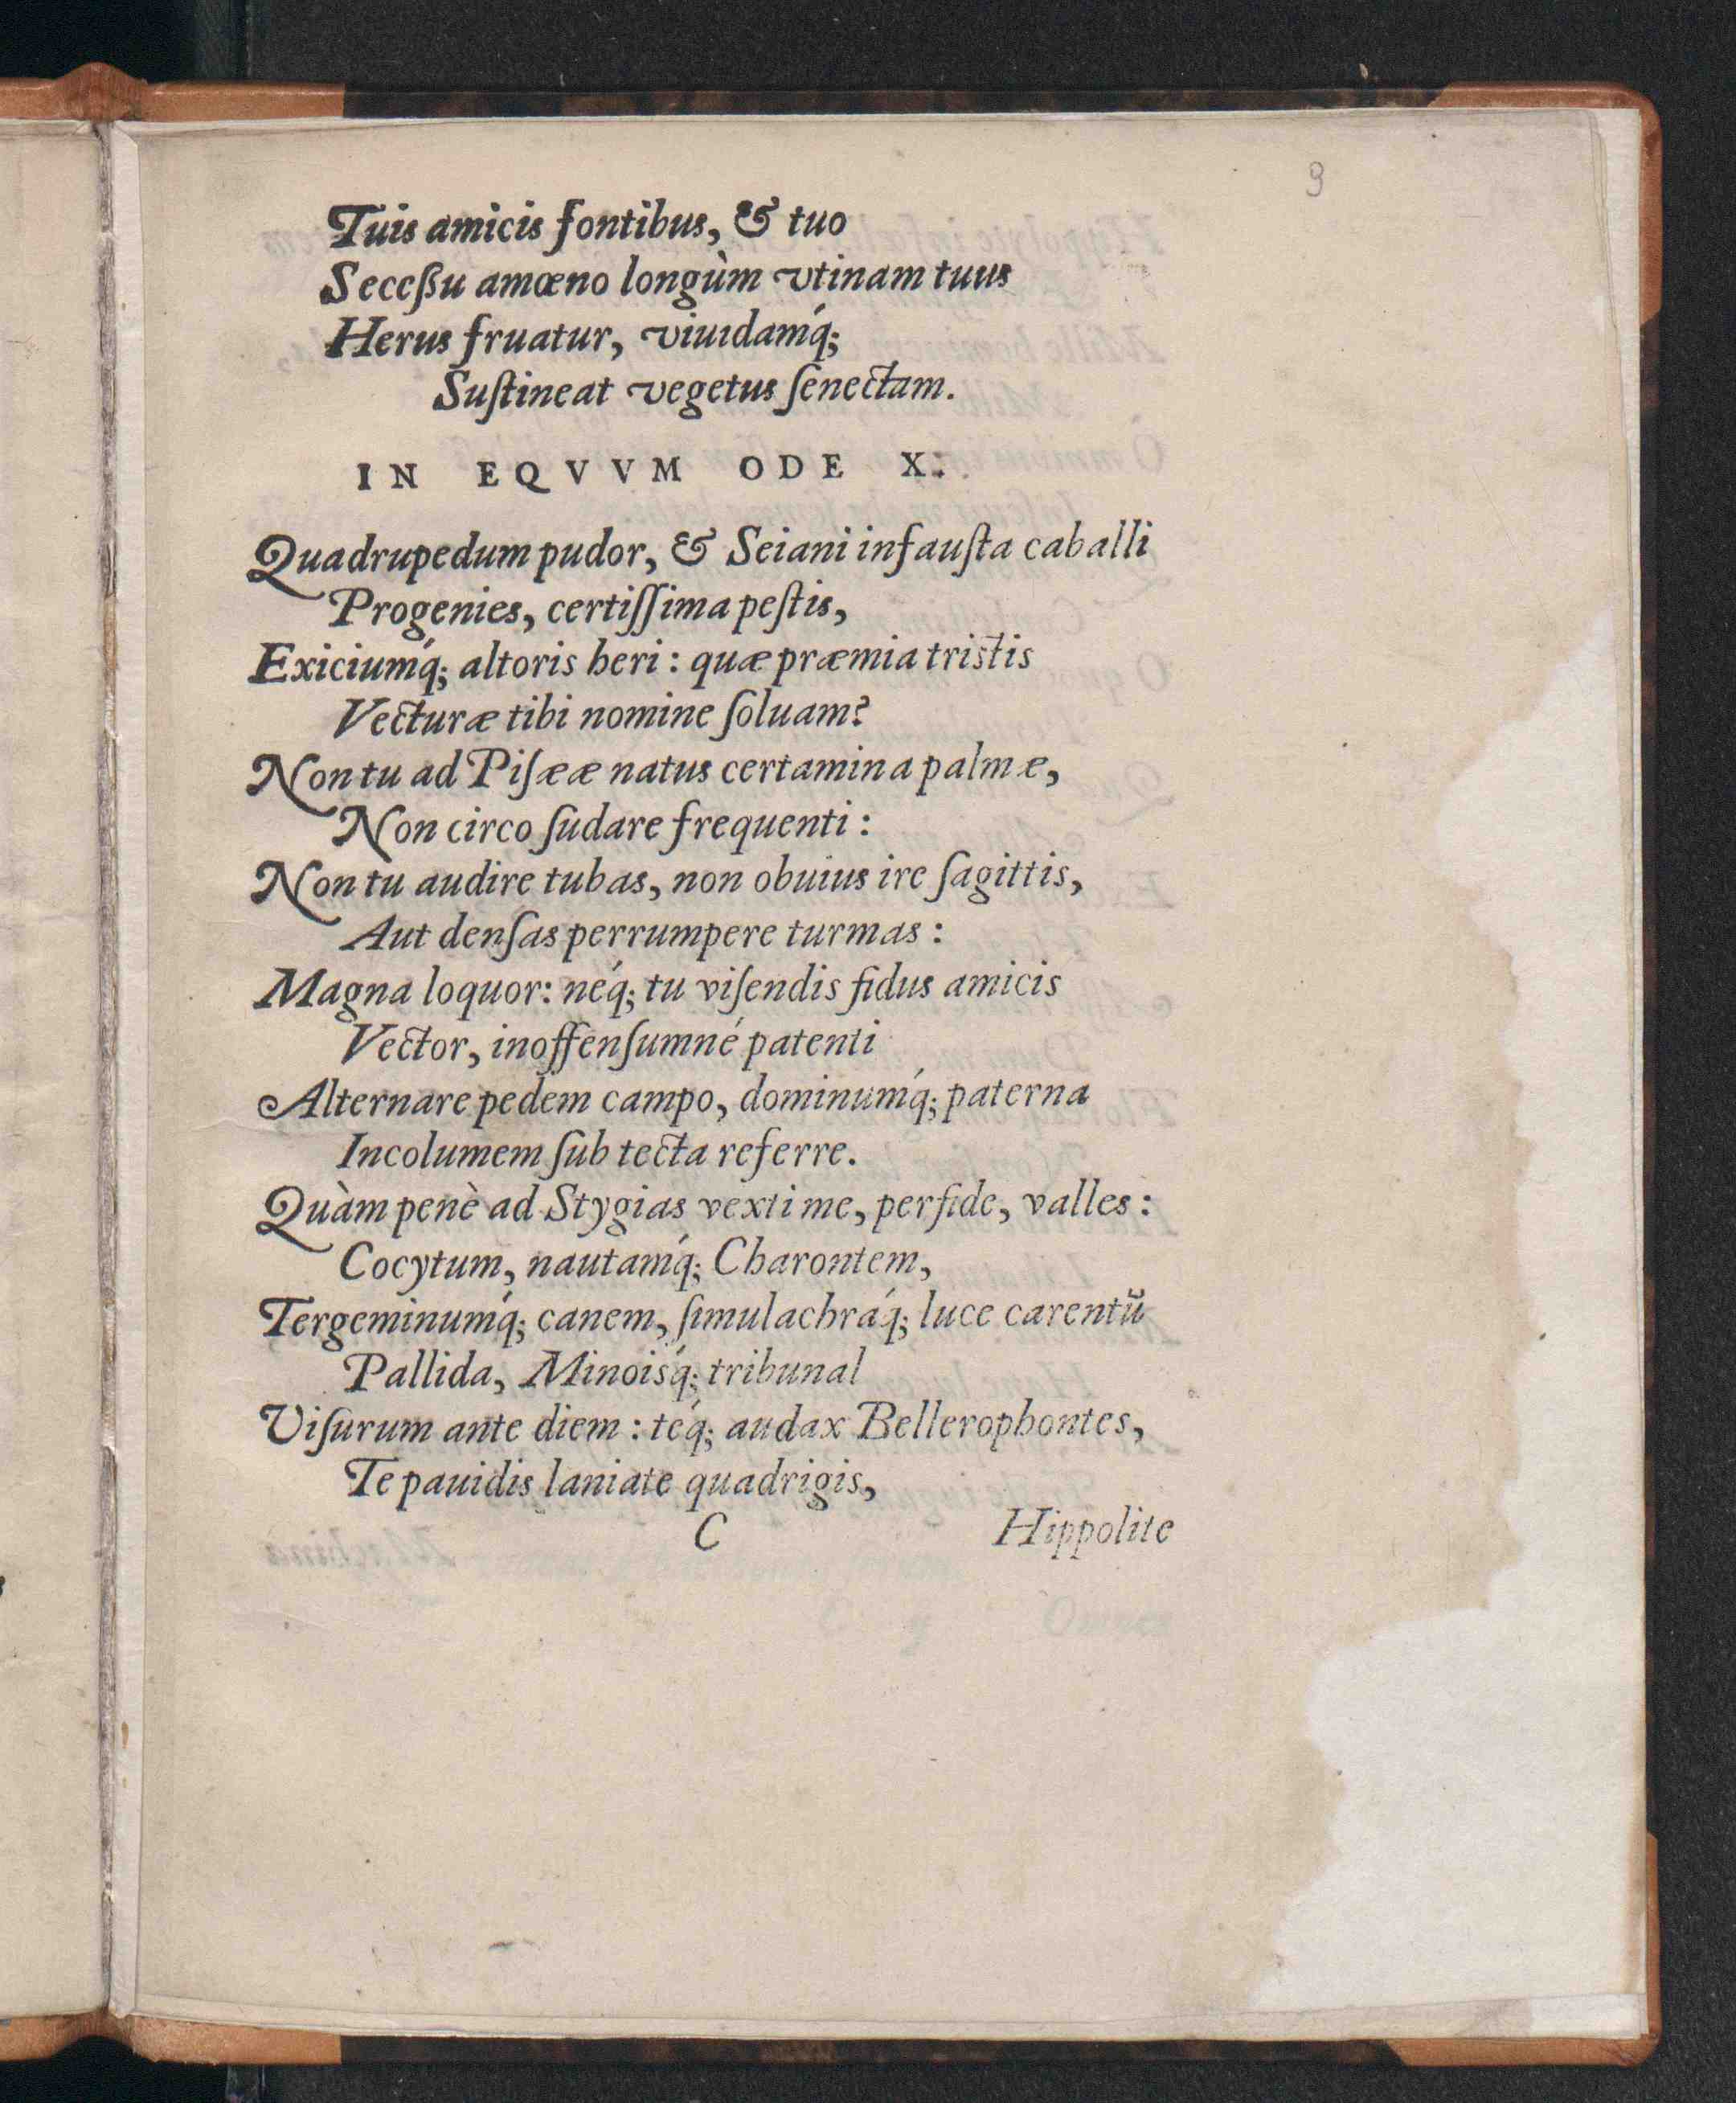 9
Tuis amicis fontibus, & tuo
Seceßu amœno longùm vtinam tuus
Herus fruatur, viuidamq́;
Suſtineat vegetus ſenectam.
IN EQVVM ODE X.
Quadrupedum pudor, & Seiani infauſta caballi
Progenies, certiſſima peſtis,
Exiciumq́; altoris heri: quæ præmia tristis
Vecturæ tibi nomine ſoluam?
Non tu ad Piſææ natus certamina palmæ,
Non circo ſudare frequenti:
Non tu audire tubas, non obuius ire ſagittis,
Aut denſas perrumpere turmas:
Magna loquor: neq́; tu viſendis fidus amicis
Vector, inoffenſumné patenti
Alternare pedem campo, dominumq́; paterna
Incolumem ſub tecta referre.
Quàm penè ad Stygias vexti me, perfide, valles:
Cocytum, nautamq́; Charontem,
Tergeminumq́; canem, ſimulachraq́; luce carentũ
Pallida, Minoisq́; tribunal
Viſurum ante diem: teq́; audax Bellerophontes,
Te pauidis laniate quadrigis,
C Hippolite